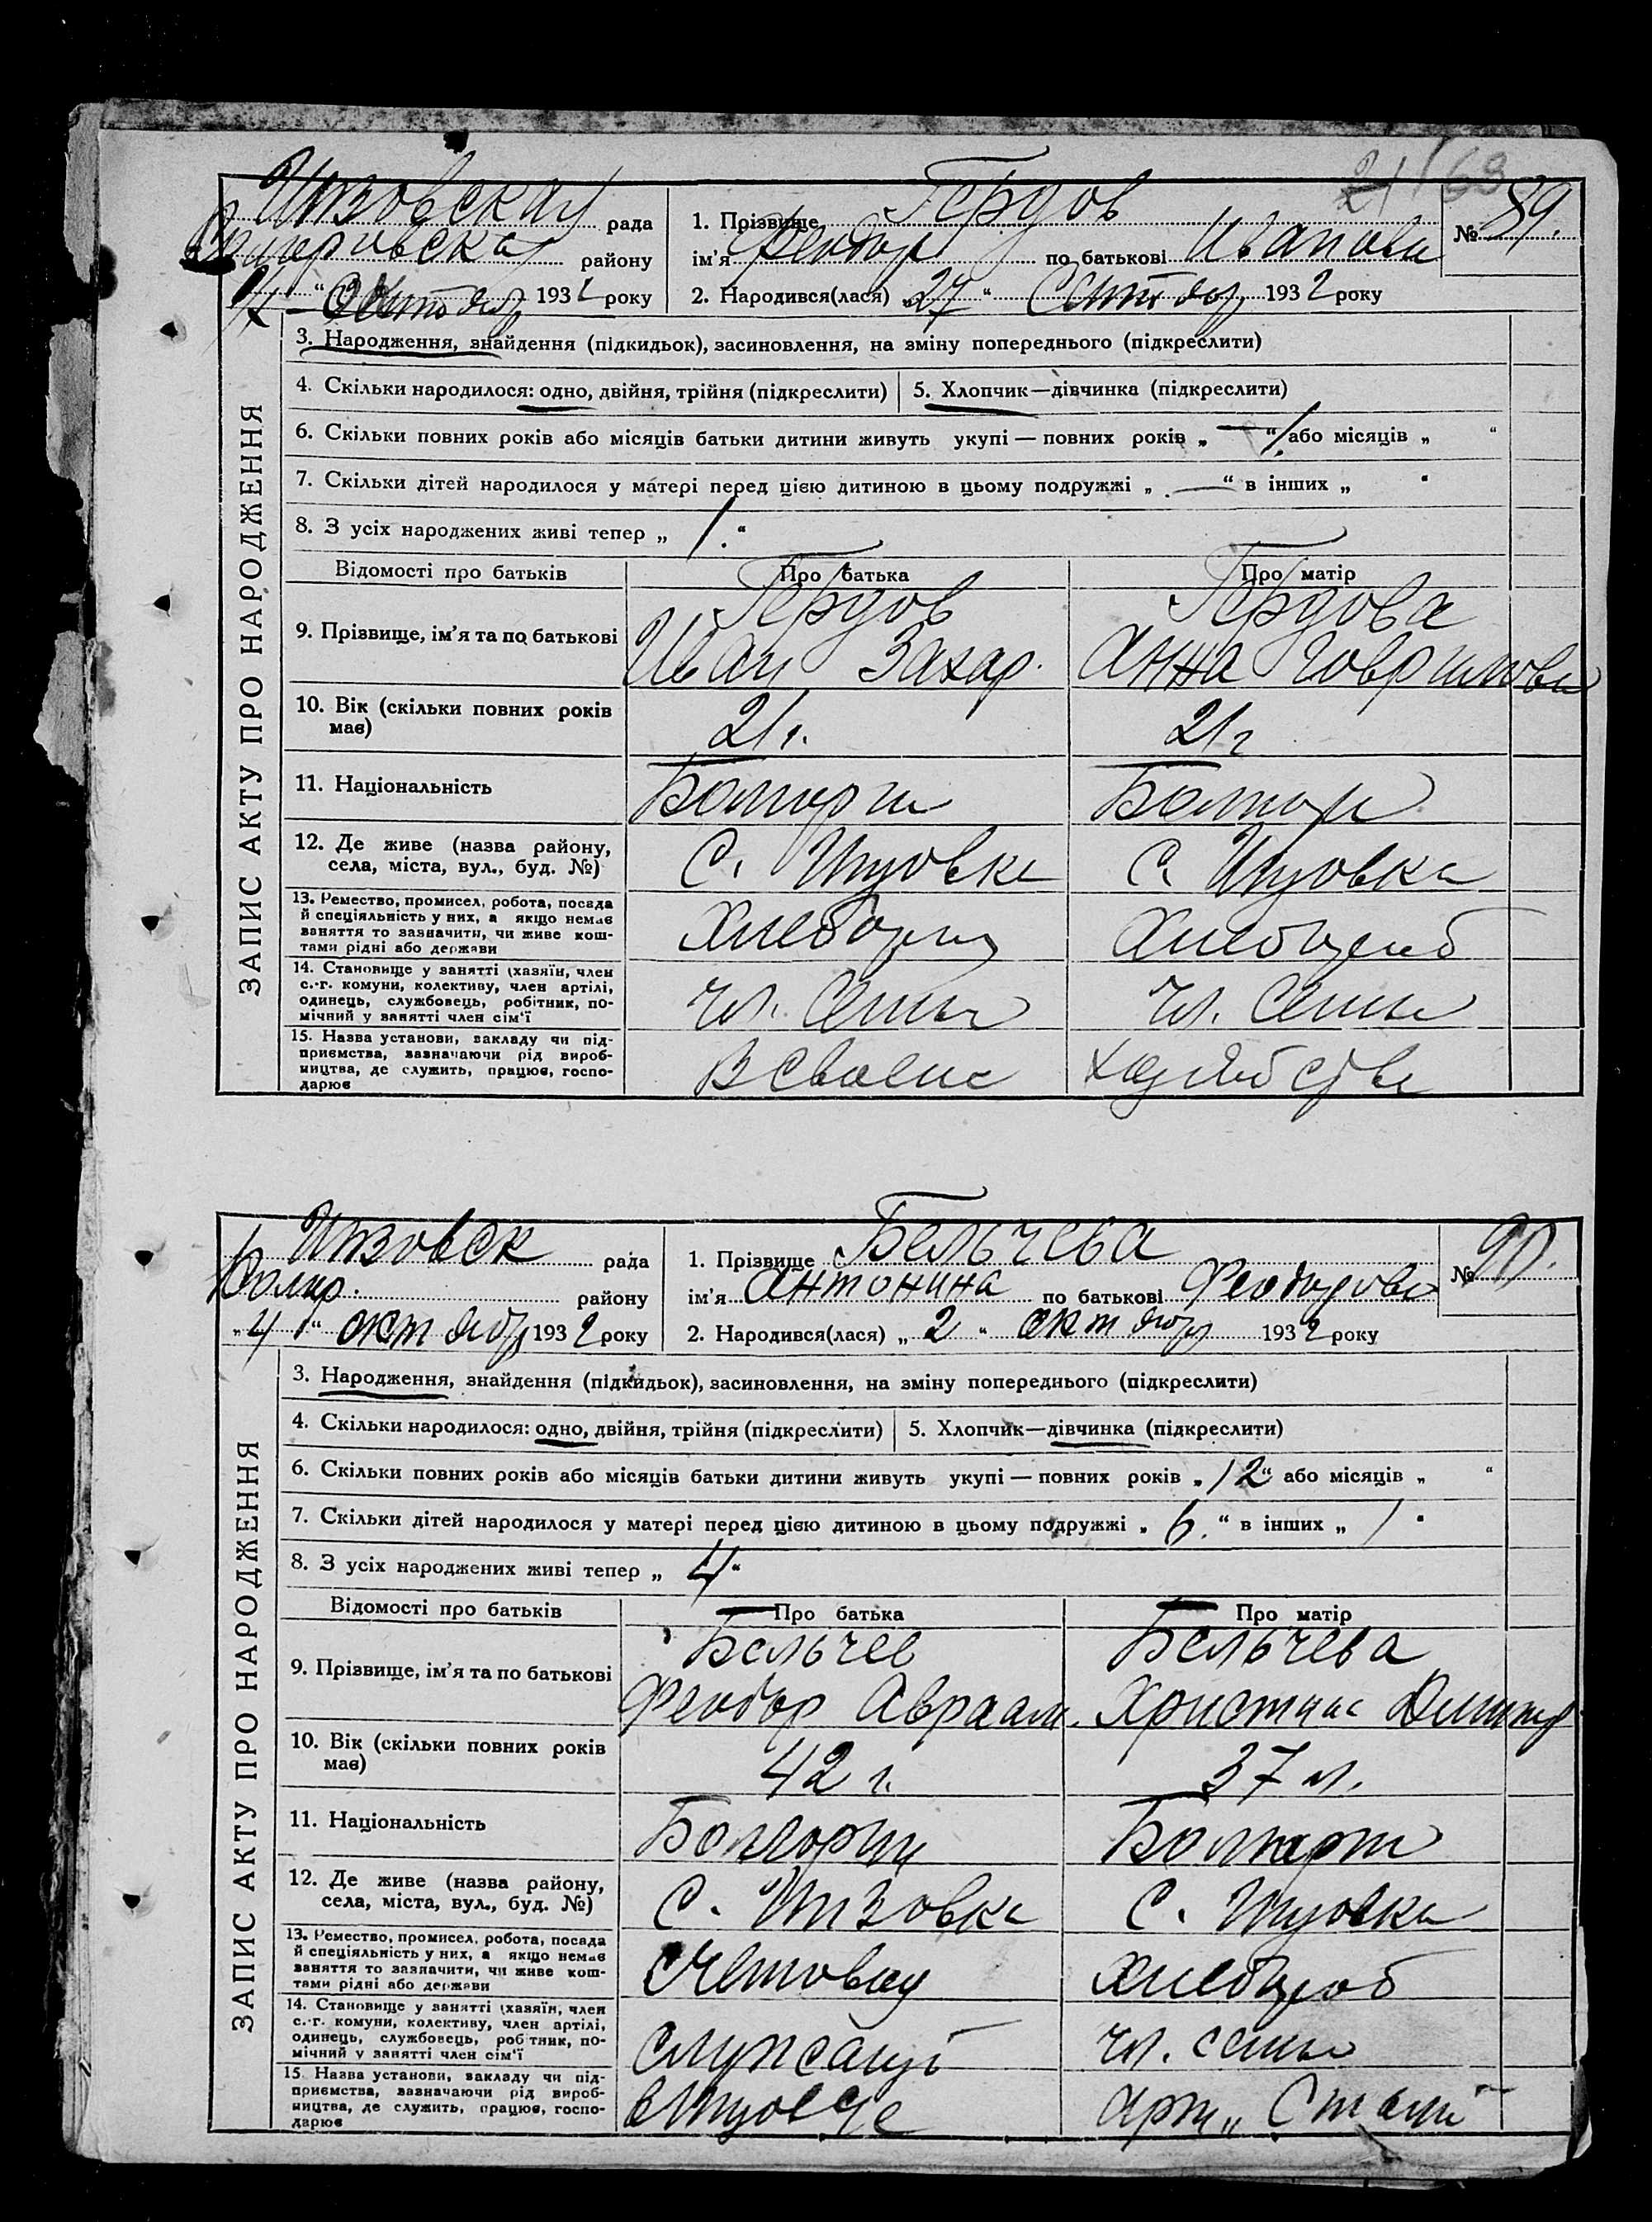 рада
району
Октябр 1932 року
1. Прізвище Гердов
ім'я Феодор по батькові Иванови
2. Народився(лася) „27“ Сентябр 1932 року
№ 89.
ЗАПИС АКТУ ПРО НАРОДЖЕННЯ
3. Народження, знайдення (підкидьок), засиновлення, на зміну попереднього (підкреслити)
4. Скільки народилося: одно, двійня, трійня (підкреслити)
5. Хлопчик—дівчинка (підкреслити)
6. Скільки повних років або місяців батьки дитини живуть укупі — повних років „ 1. “ або місяців „ “
7. Скільки дітей народилося у матері перед цією дитиною в цьому подружжі „ — “ в інших „ “
8. З усіх народжених живі тепер „ 1. “
Відомості про батьків Про батька Про матір
9. Прізвище, ім'я та по батькові
Гердов
Иван Захар.
Гердова
Анна Гаврилови
10. Вік (скільки повних років
має)
21 г.
21 г
11. Національність
12. Де живе (назва району,
села, міста, вул., буд. №)
13. Ремество, промисел, робота, посада
й спеціяльність у них, а якщо немає
заняття то зазначити, чи живе кош-
тами рідні або держави
14. Становище у занятті (хазяїн, член
с.-г. комуни, колективу, член артілі,
одинець, службовець, робітник, по-
мічний у занятті член сім'ї
чл. семьи
чл. семьи
15. Назва установи, закладу чи під-
приємства, зазначаючи рід вироб-
ництва, де служить, працює, госпо-
дарює
В своем
рада
Болгар. району
„4“ октябр 1932 року
1. Прізвище Бельчева
ім'я Антонина по батькові Феодоровн
2. Народився(лася) „2“ октябр 1932 року
№ 90.
ЗАПИС АКТУ ПРО НАРОДЖЕННЯ
3. Народження, знайдення (підкидьок), засиновлення, на зміну попереднього (підкреслити)
4. Скільки народилося: одно, двійня, трійня (підкреслити)
5. Хлопчик—дівчинка (підкреслити)
6. Скільки повних років або місяців батьки дитини живуть укупі — повних років „12“ або місяців „ “
7. Скільки дітей народилося у матері перед цією дитиною в цьому подружжі „ 6. “ в інших „ 1 “
8. З усіх народжених живі тепер „ 4 “
Відомості про батьків Про батька Про матір
9. Прізвище, ім'я та по батькові
Бельчев
Феодор Авраам.
Бельчева
Христина
10. Вік (скільки повних років
має)
42 г.
37 л.
11. Національність
12. Де живе (назва району,
села, міста, вул., буд. №)
13. Ремество, промисел, робота, посада
й спеціяльність у них, а якщо немає
заняття то зазначити, чи живе кош-
тами рідні або держави
Счетовод
14. Становище у занятті (хазяїн, член
с.-г. комуни, колективу, член артілі,
одинець, службовець, робітник, по-
мічний у занятті член сім'ї
служащ
чл. семьи
15. Назва установи, закладу чи під-
приємства, зазначаючи рід вироб-
ництва, де служить, працює, госпо-
дарює